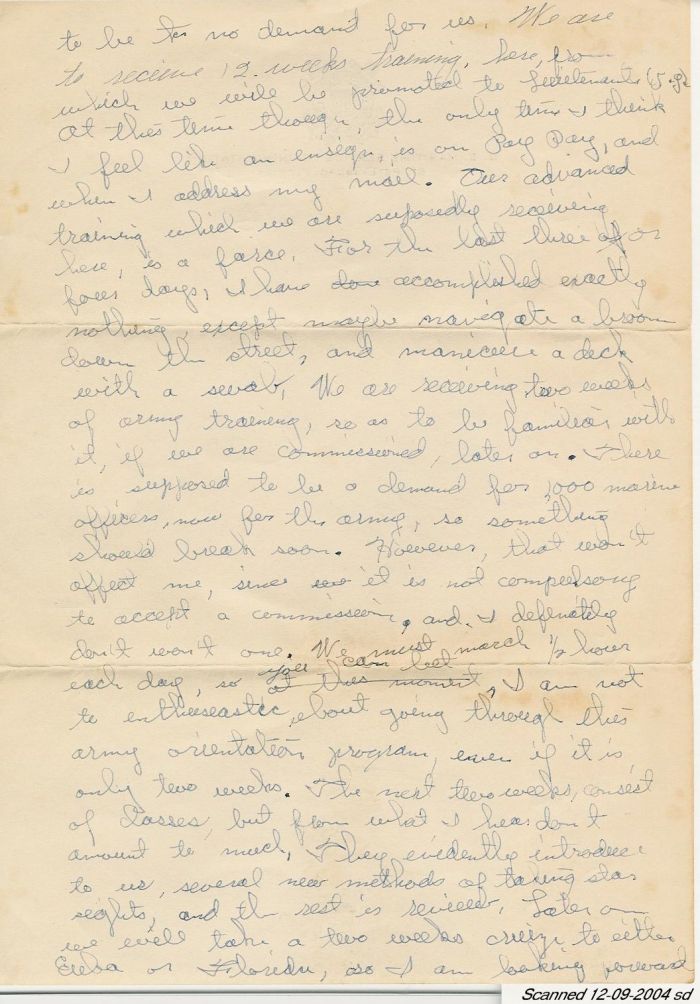 to be no demand for us. We are
to receive 12 weeks training, here, from
which we will be promoted to Lieutenants (J.g)
At this time though, the only time I think
I feel like an ensign, is on Pay Day, and
when I address my mail. Our advanced
training which we are supposedly receiving
here, is a farce. For the last three of or
four days, I have done accomplished exactly
nothing, except maybe navigate a broom
down the street, and manicure a deck
with a swab. We are receiving two weeks
of army training, so as to be familiar with
it, if we are commissioned, later on. There
is supposed to be a demand for 1,000 marine
officers, now for the army, so something
should break soon. However, that won't
affect me, since it is not compulsory
to accept a commission, and I definitely
don't want one. We must march 1/2 hour
each day, so you can bet at this moment, I am not
to enthuseastic about going through this
army orientation program, even if it is
only two weeks. The next two weeks, consist
of classes, but from what I hear don't
amount to much. They evidently introduce
to us, several new methods of taking star
sights, and the rest is review. Later on
we will take a two weeks cruize to either
Cuba or Florida, so I am looking forward
Scanned 12-09-2004 sd